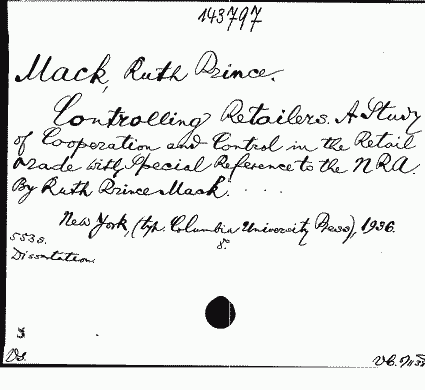 143797
Mack, Ruth Prince.
Controlling Retailers. A Study
of Cooperation and Control in the Retail
Trade with Special Reference to the NRA.
By Ruth Prince Mack. . . .
New York, (typ. Columbia University Press), 1936.
8°.
553 s.
Dissertation.
Ds.